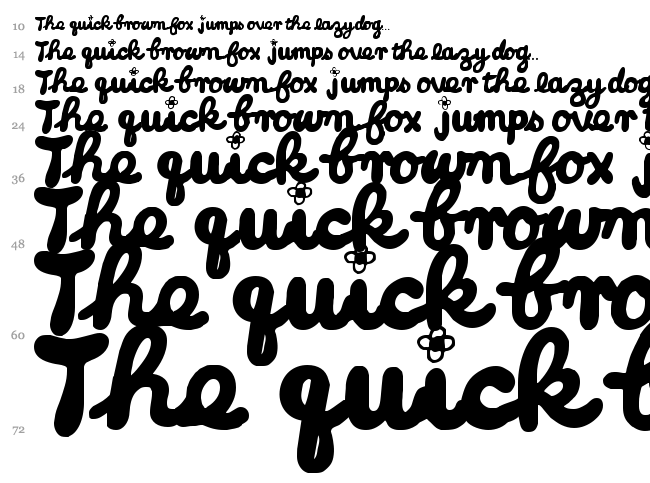 10 The quick brown fox jumps over the lazy dog...
14 The quick brown fox jumps over the lazy dog..
18 The quick brown fox jumps over the lazy dog
24 The quick brown fox jumps over t
36 The quick brown fox j
48 The quick brown
60 The quick bro
72 The quick b